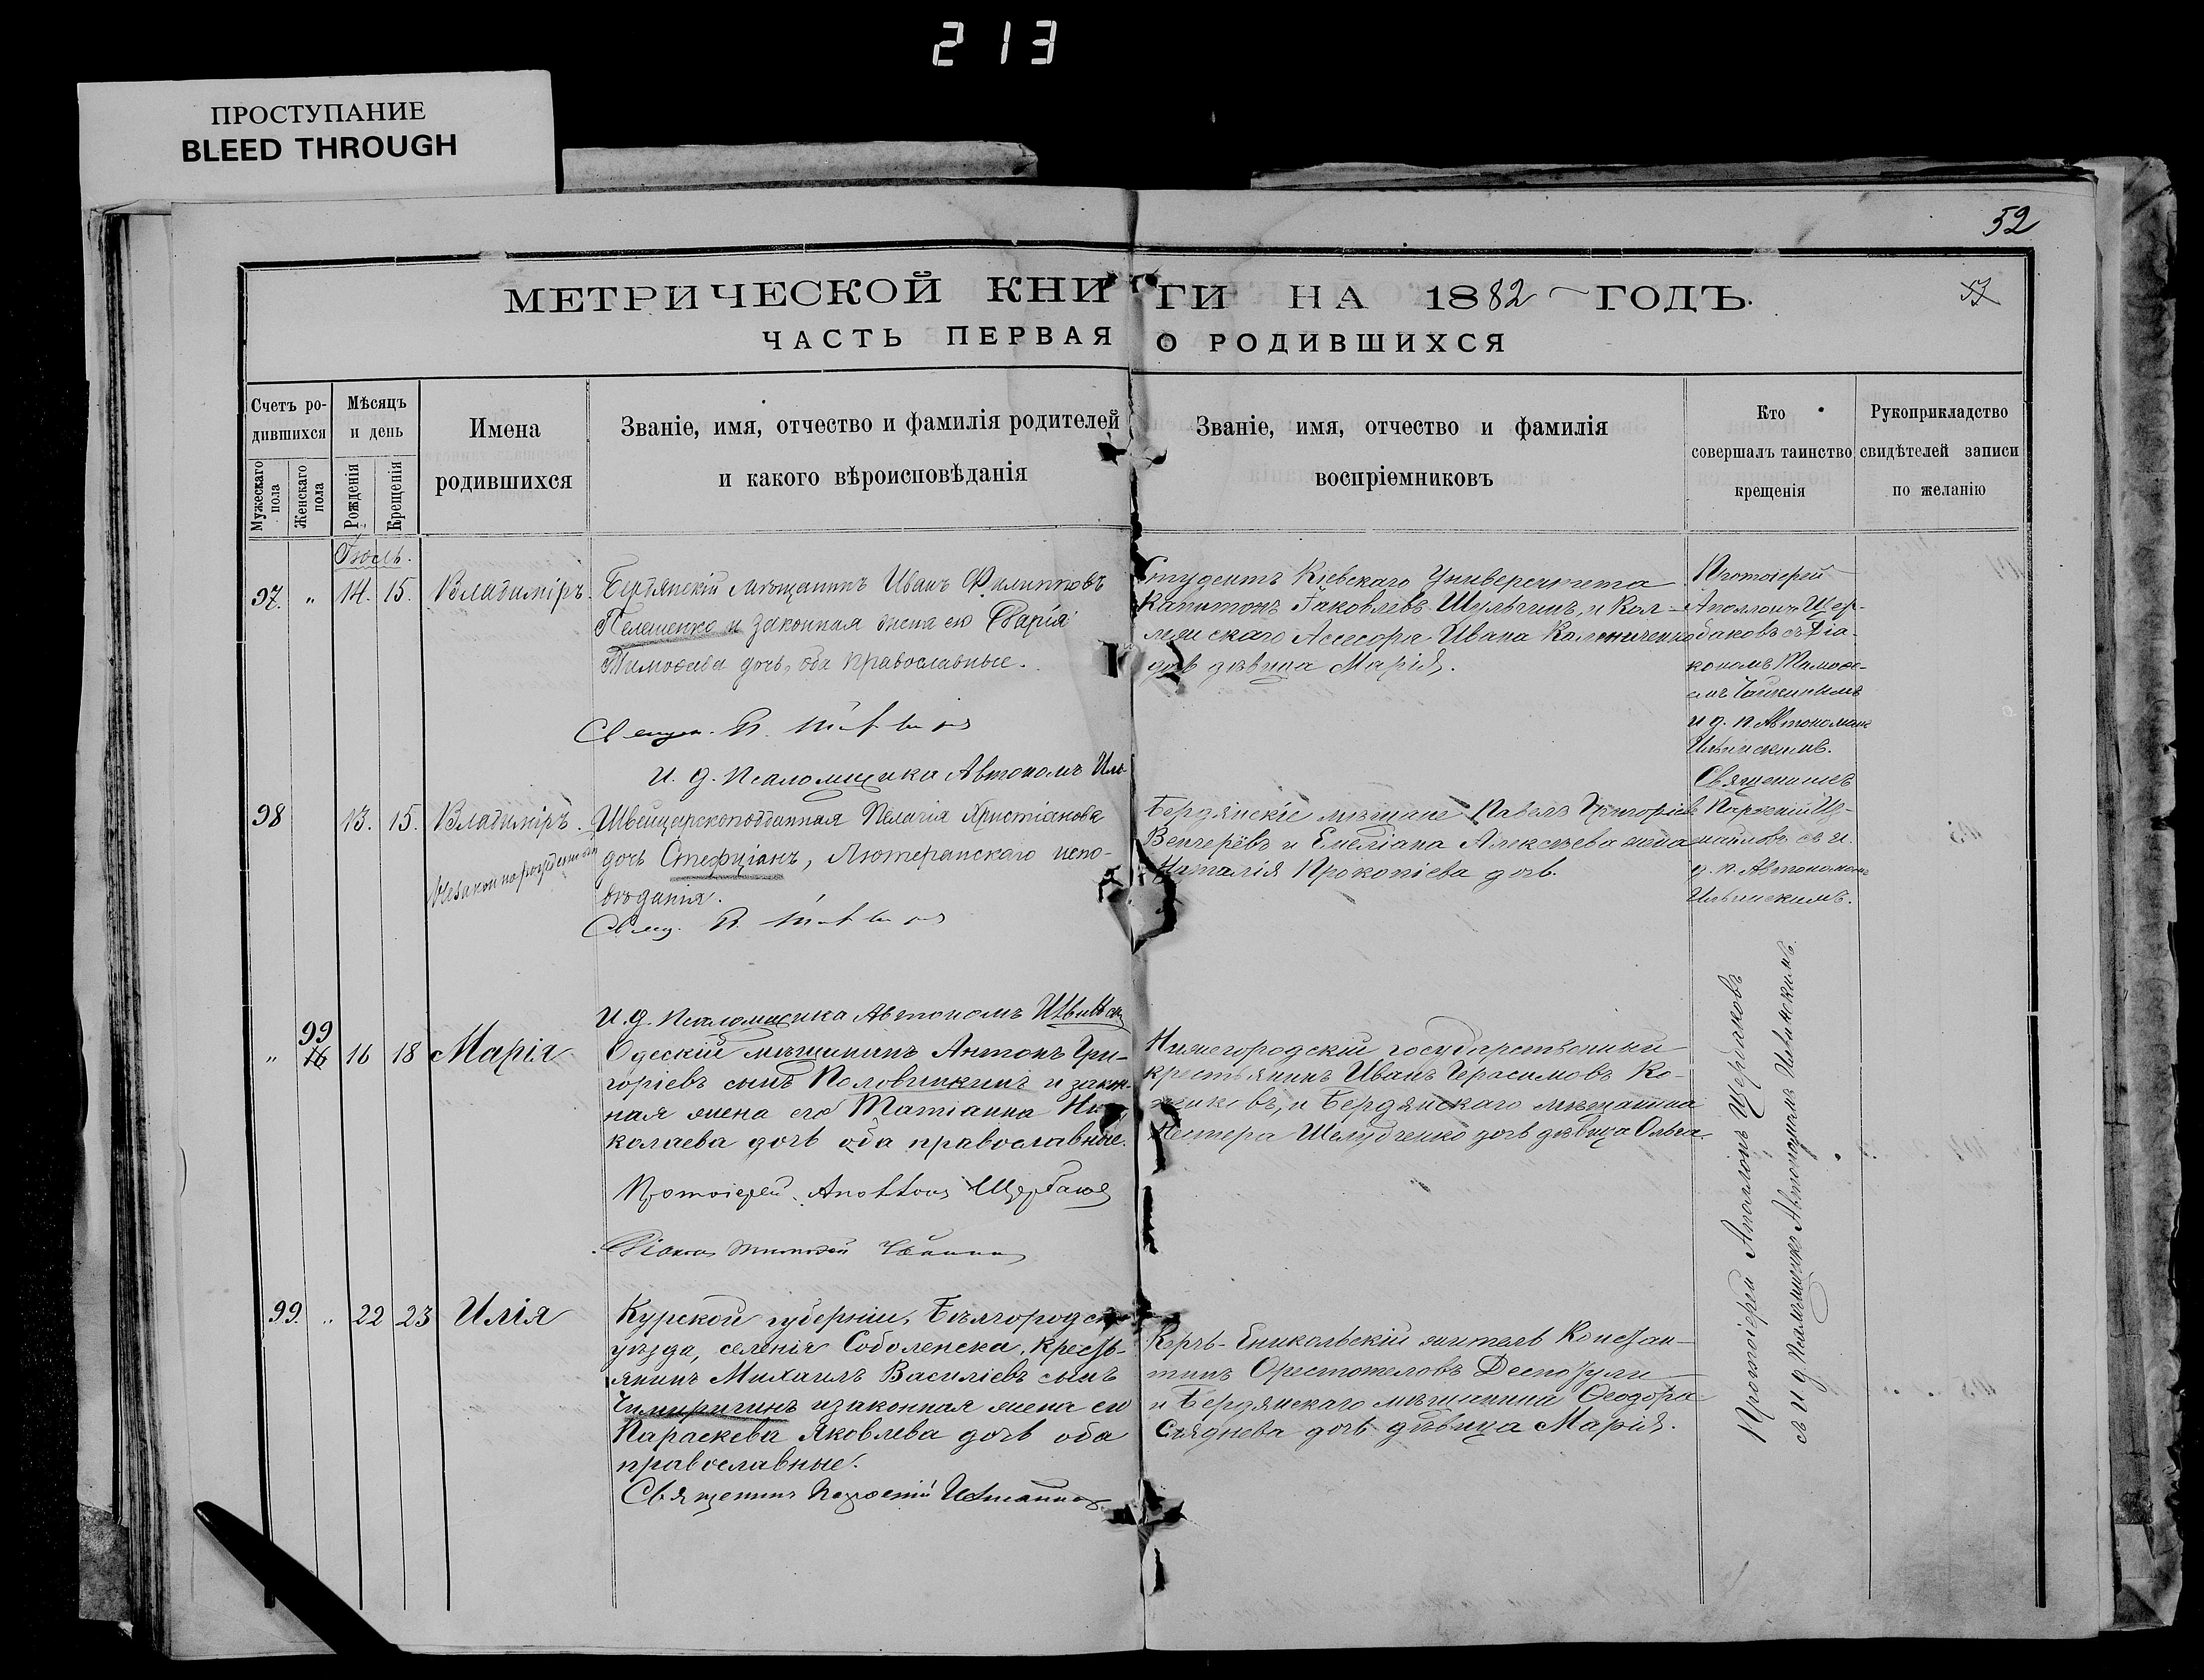 213
ПРОСТУПАНИЕ
BLEED THROUGH
52
МЕТРИЧЕСКОЙ КНИГИ НА 1882 ГОДЪ.
57
ЧАСТЬ ПЕРВАЯ О РОДИВШИХСЯ
Счетъ ро-
дившихся
Мужескаго пола
Женскаго пола
Мѣсяцъ
и день
Рожденія
Крещенія
Имена
родившихся
Званіе, имя, отчество и фамилія родителей
и какого вѣроисповѣданія
Званіе, имя, отчество и фамилія
воспріемниковъ
Кто
совершалъ таинство
крещенія
Рукоприкладство
свидѣтелей записи
по желанію
Іюль.
97. " 14. 15. Владиміръ.
Бердянскій мѣщанинъ Иванъ Филипповъ
Пелешенко и законная жена его Дарія
Тимофеева дочь, оба православные.
Студентъ Кіевскаго Университета
Капитонъ Іаковлевъ Шульгинъ, и Кол-
лежскаго Ассесора Ивана Калениченко
дочь дѣвица Марія.
Протоіерей
Аполлонъ Щер-
баковъ съ Діа-
кономъ Тимофе-
емъ
и д. п. Автономомъ
Ильинскимъ.
Священ. П.
И. д. Псаломщика Автономъ Иль
98 13. 15. Владиміръ.
Незаконнорожденный
Швейцарскоподданная Пелагія Христіанова
дочь Стефціанъ, Лютеранскаго испо-
вѣданія.
Свящ. П.
Бердянскіе мѣщане Павелъ Григоріевъ
Венгерёвъ и Емеліана Алексѣева жена
Наталія Прокопіева дочь.
Священникъ
Парѳеній Из-
маиловъ съ и.
д. п. Автономомъ
Ильинскимъ.
И. д. Псаломщика Автономъ Ильинскій
" 99 16 16 18 Марія
Одескій мѣщанинъ Антонъ Гри-
горіевъ сынъ Половинкинъ и закон-
ная жена его Татіанна Ни-
колаева дочь оба православные.
Нижегородскій государственный
крестьянинъ Иванъ Герасимовъ Ко-
и Бердянскаго мѣщанина
Нестера Шелудченко дочь дѣвица Ольга.
Протоіерей Аполлонъ Щербаковъ
съ И д. Псаломщика Автономомъ Ильинскимъ.
Протоіерей Аполлонъ Щербаковъ
Діаконъ Тимофей
99. " 22 23 Илія
Курской губерніи, Бѣлгородска
уѣзда, селенія Соболевска, кресть-
янинъ Михаилъ Василіевъ сынъ
Чимиригинъ и законная жена его
Параскева Яковлева дочь оба
православные.
Керчь-Ениколській житель Констан-
тинъ Орестотеловъ Деспотули
и Бердянскаго мѣщанина Ѳеодора
Сяднева дочь дѣвица Марія.
Священникъ Парѳеній Измаиловъ